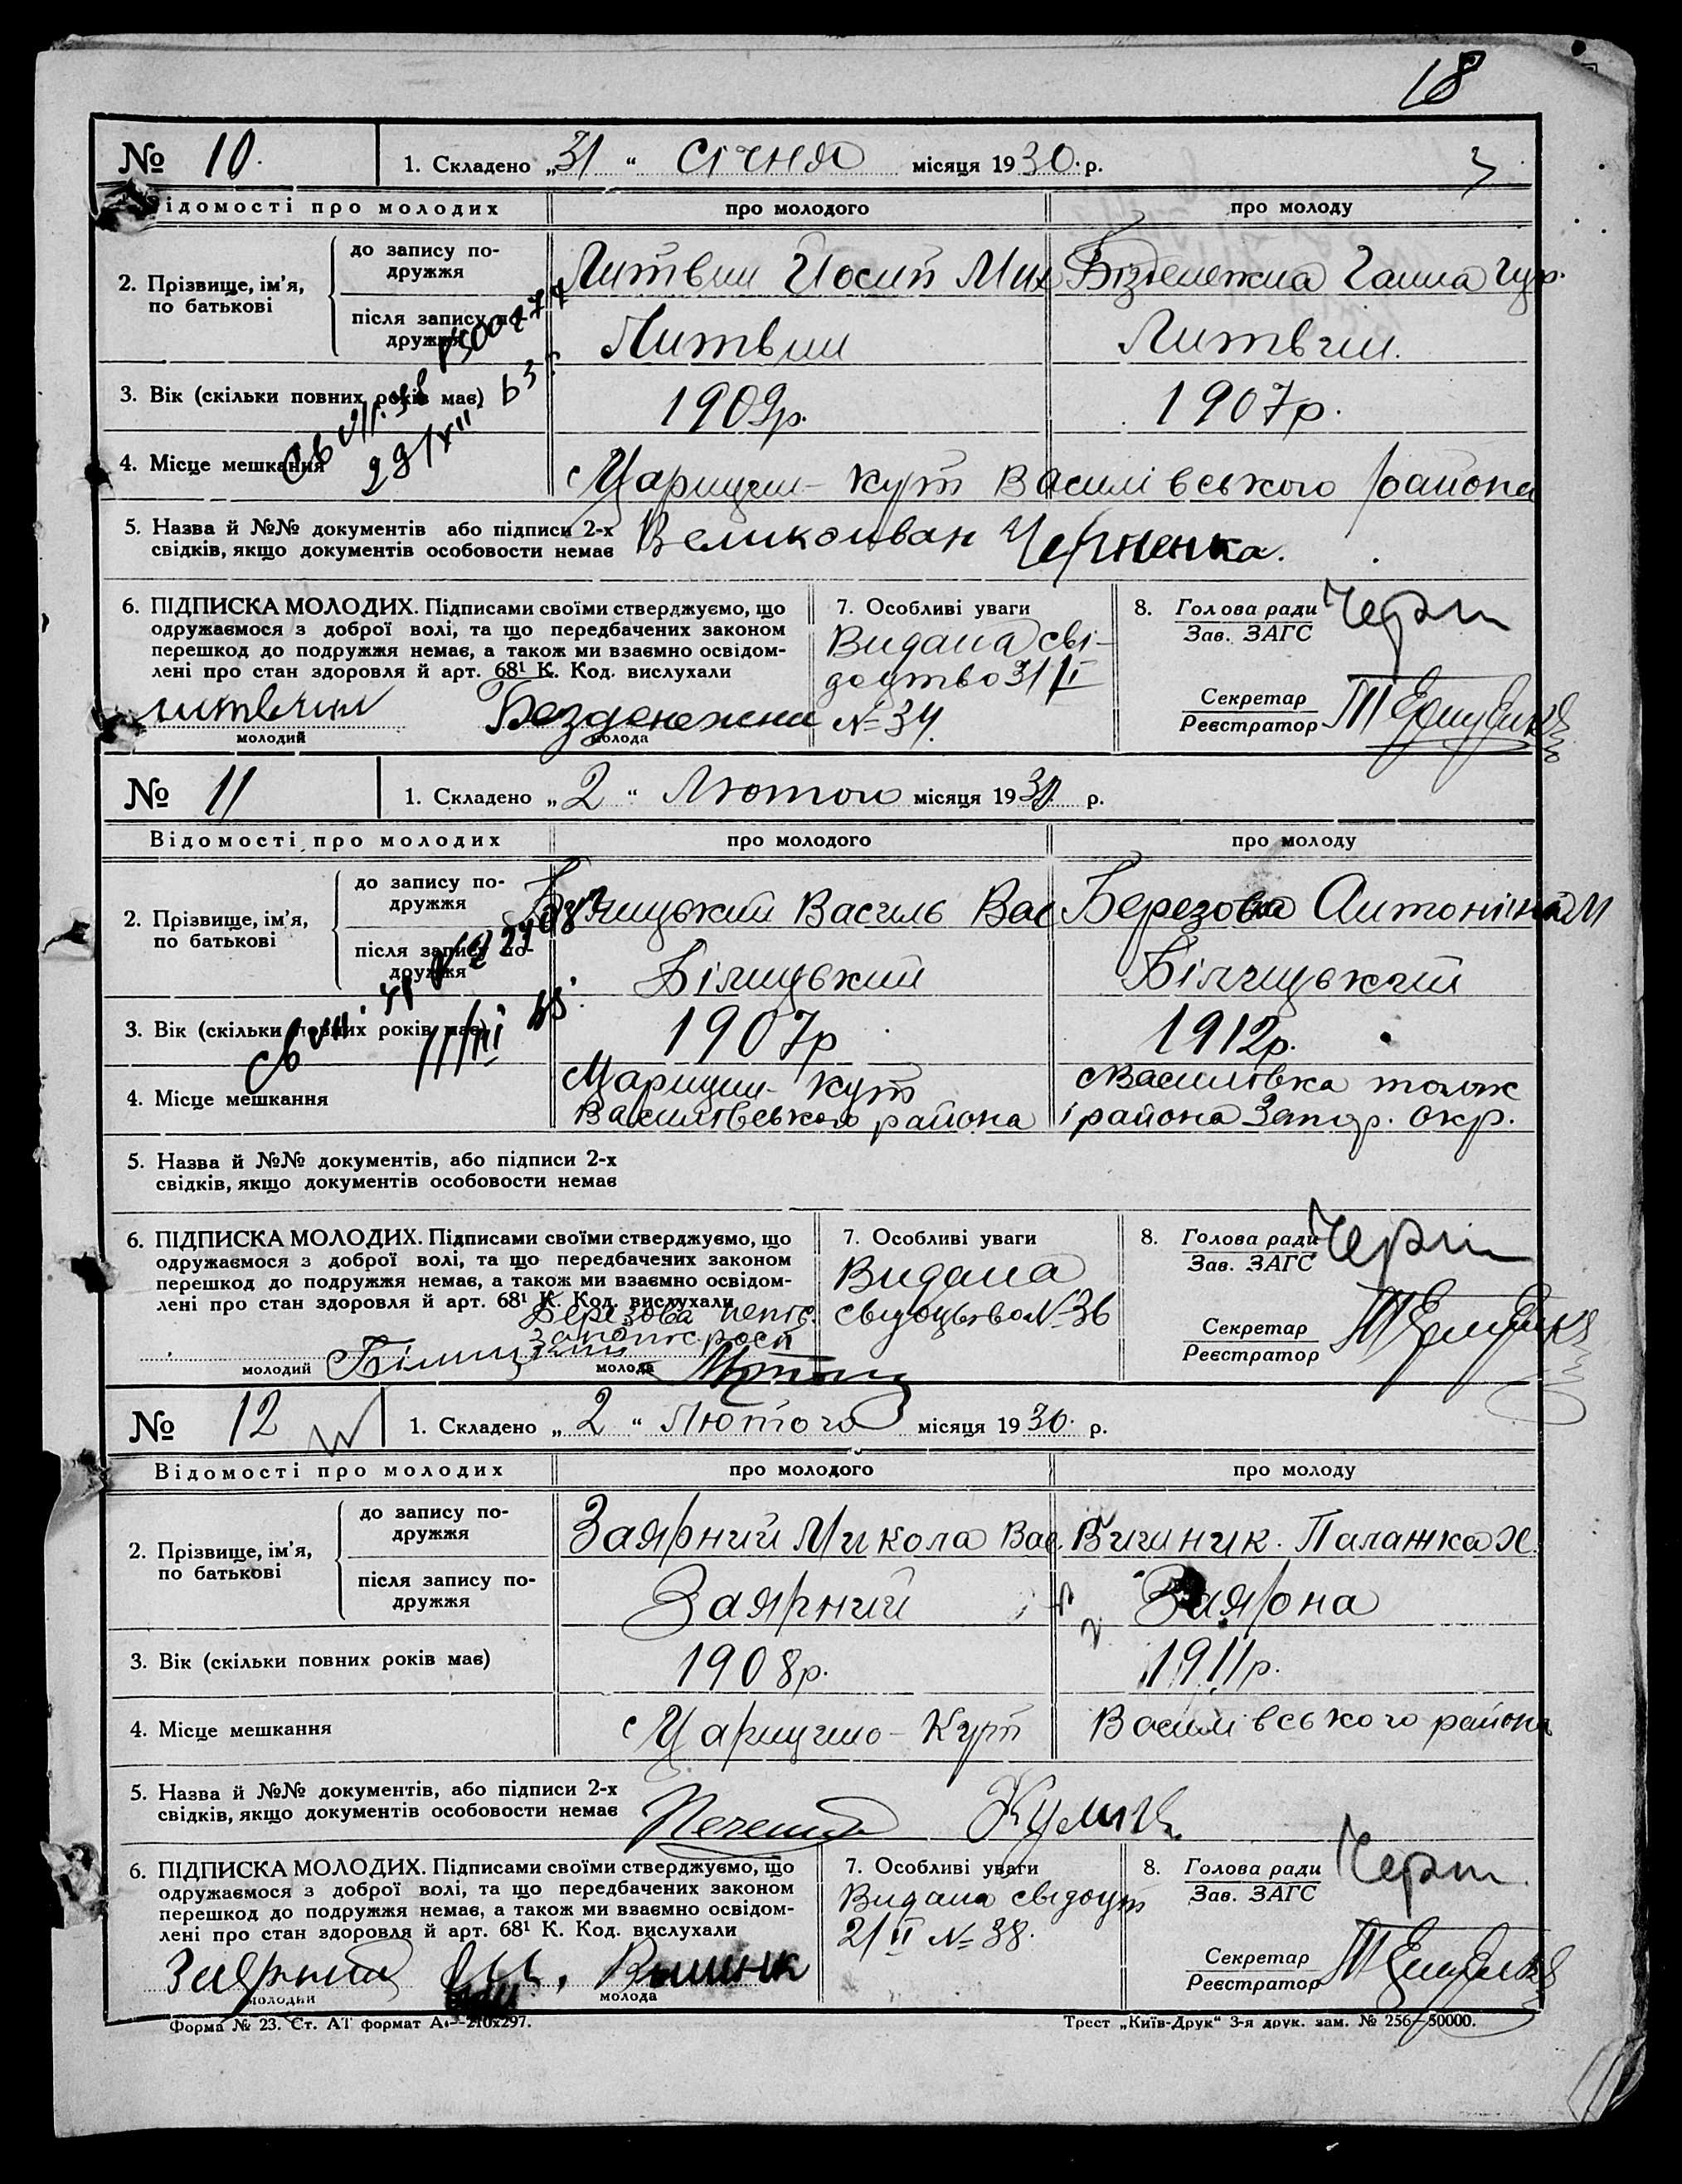 18
№ 10. 1. Складено „31“ січня місяця 1930. р.
Відомості про молодих про молодого про молоду
2. Прізвище, ім'я, по батькові
до запису подружжя Литвин Йосип Мих Бізденежна Ганна Гур.
після запису подружжя Литвин Литвин.
3. Вік (скільки повних років має) 1909р. 1907р.
4. Місце мешкання с Царицин-кут Василівського района
5. Назва й №№ документів або підписи 2-х
свідків, якщо документів особовости немає Великоиван Черненка.
6. ПІДПИСКА МОЛОДИХ. Підписами своїми стверджуємо, що
одружаємося з доброї волі, та що передбачених законом
перешкод до подружжя немає, а також ми взаємно освідом-
лені про стан здоровля й арт. 68¹ К. Код. вислухали
литвин молодий Безденежни молода
7. Особливі уваги
Видана сві-
доцтво 31/I
№ 34.
8. Голова ради
Зав. ЗАГС
Секретар
Реєстратор
№ 11 1. Складено „2“ Лютого місяця 1930. р.
Відомості про молодих про молодого про молоду
2. Прізвище, ім'я, по батькові
до запису подружжя Білицький Василь Вас Березова Антоніна М
після запису подружжя Білицький Білицький
3. Вік (скільки повних років має) 1907р 1912р.
4. Місце мешкання с Царицин-кут с Василівка того ж
Василівського района і района Запор. окр.
5. Назва й №№ документів, або підписи 2-х
свідків, якщо документів особовости немає
6. ПІДПИСКА МОЛОДИХ. Підписами своїми стверджуємо, що
одружаємося з доброї волі, та що передбачених законом
перешкод до подружжя немає, а також ми взаємно освідом-
лені про стан здоровля й арт. 68¹ К. Код. вислухали
Березова
молодий молода
7. Особливі уваги
Видана
свідоцьтво № 36
8. Голова ради
Зав. ЗАГС
Секретар
Реєстратор
№ 12 1. Складено „2“ Лютого місяця 1930. р.
Відомості про молодих про молодого про молоду
2. Прізвище, ім'я, по батькові
до запису подружжя Заярний Микола Вас. Вишник. Палажка Х.
після запису подружжя Заярний Заярна
3. Вік (скільки повних років має) 1908р. 1911р.
4. Місце мешкання с Царицино-Кут Василівського района
5. Назва й №№ документів, або підписи 2-х
свідків, якщо документів особовости немає
6. ПІДПИСКА МОЛОДИХ. Підписами своїми стверджуємо, що
одружаємося з доброї волі, та що передбачених законом
перешкод до подружжя немає, а також ми взаємно освідом-
лені про стан здоровля й арт. 68¹ К. Код. вислухали
Заярний молодий молода
7. Особливі уваги
Видано свідоцт
2/II № 38.
8. Голова ради
Зав. ЗАГС
Секретар
Реєстратор
Форма № 23. Ст. АТ формат А₄—210x297. Трест „Київ-Друк“ 3-я друк. зам. № 256—50000.